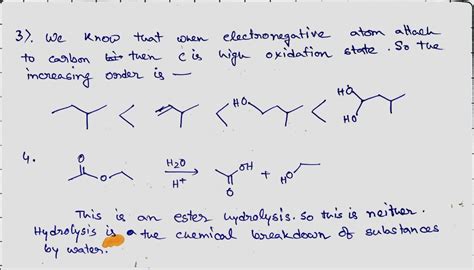 3). We know that when electronegative atom attach
to carbon then C is high oxidation state. So the
increasing order is —
< < HO < HO HO
4.
O O H2O H+ OH O + HO
This is an ester hydrolysis. So this is neither.
Hydrolysis is a the chemical breakdown of substances
by water.